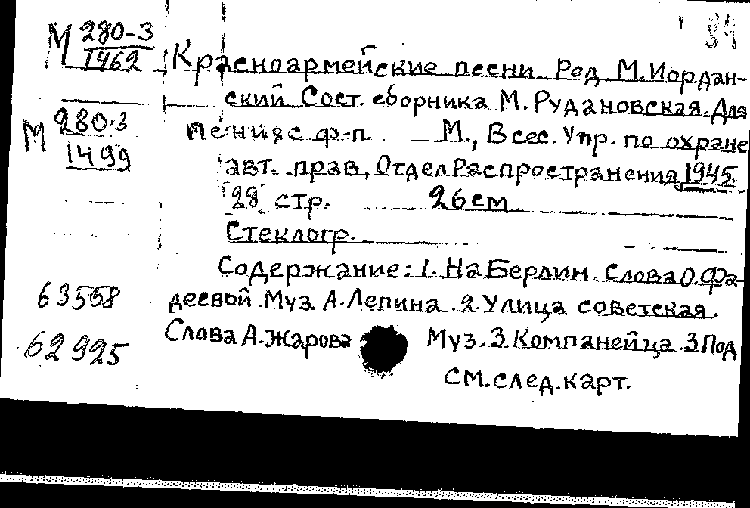 М 280-3
1462
Красноармейские песни. Ред М. Иордан-
ский Сост. сборника М. Рудановская. Для
М 280.3
1499
пения с ф-п. М., Всес. Упр. по охране
авт. прав, Отдел Распространения, 1945
28 стр. 26 см
Стеклогр.
Содержание: 1. На Берлин. Слова О. Фа-
63558
деевой. Муз. А. Лепина. 2. Улица советская.
62925
Слова А. Жарова Муз. З. Компанейца. 3 Под
см. след. карт.